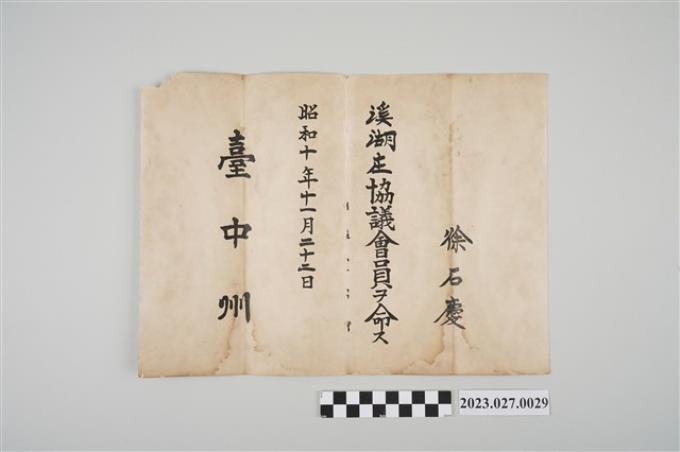 徐石慶
溪湖庄協議會員ヲ命ス
昭和十年十一月二十二日
臺中州
2023.027.0029